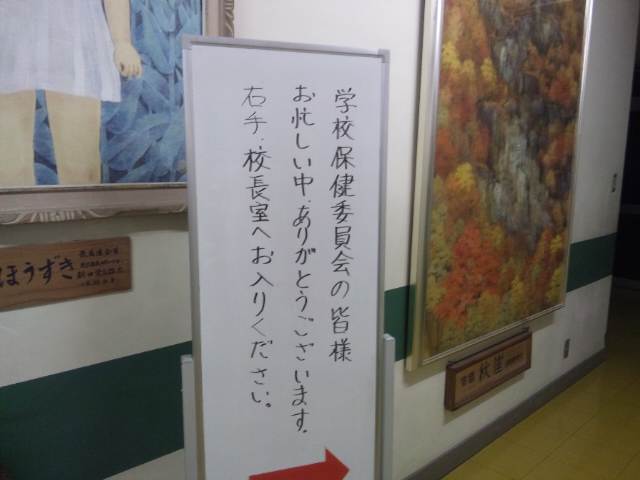 学校保健委員会の皆様
お忙しい中、ありがとうございます。
右手、校長室へお入りください。
ほうずき
秋崖